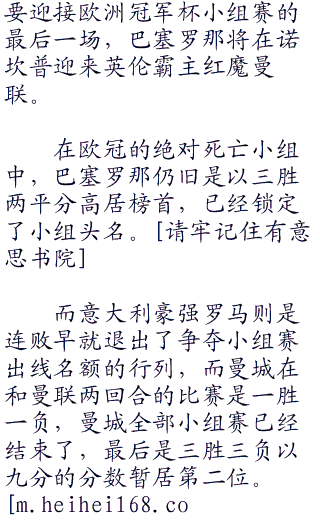 要迎接欧洲冠军杯小组赛的
最后一场，巴塞罗那将在诺
坎普迎来英伦霸主红魔曼
联。
在欧冠的绝对死亡小组
中，巴塞罗那仍旧是以三胜
两平分高居榜首，已经锁定
了小组头名。[请牢记住有意
思书院]
而意大利豪强罗马则是
连败早就退出了争夺小组赛
出线名额的行列，而曼城在
和曼联两回合的比赛是一胜
一负，曼城全部小组赛已经
结束了，最后是三胜三负以
九分的分数暂居第二位。
[m.heihei168.co